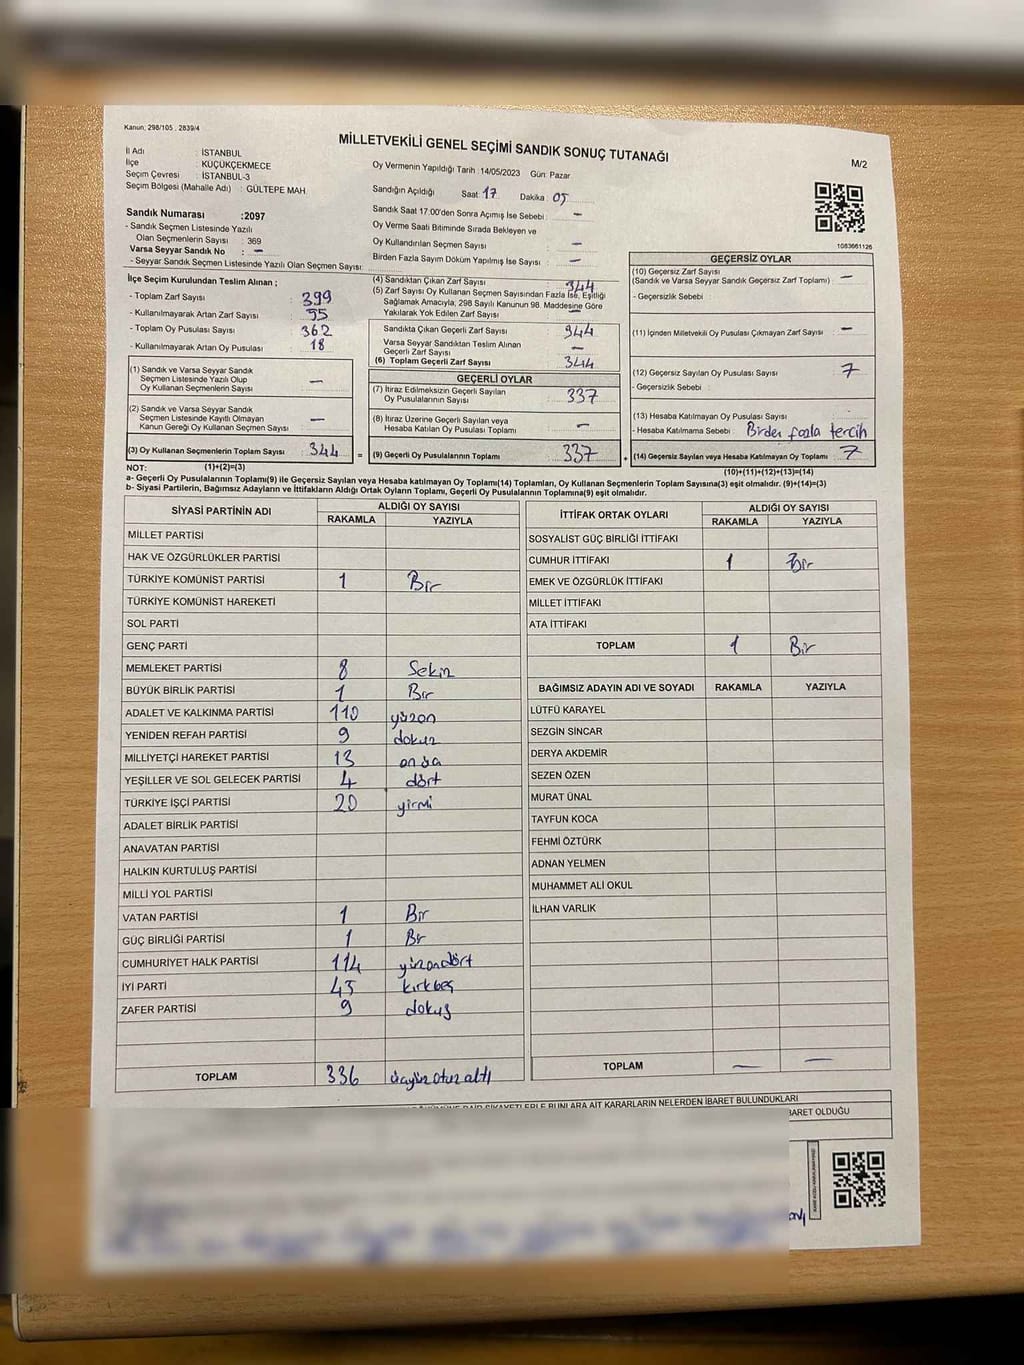 Kanun; 298/105 , 2839/4
MİLLETVEKİLİ GENEL SEÇİMİ SANDIK SONUÇ TUTANAĞI
M/2
İl Adı : İSTANBUL
İlçe : KÜÇÜKÇEKMECE
Seçim Çevresi : İSTANBUL-3
Seçim Bölgesi (Mahalle Adı) : GÜLTEPE MAH.
Oy Vermenin Yapıldığı Tarih :14/05/2023 Gün: Pazar
Sandığın Açıldığı Saat: 17 Dakika: 05
Sandık Numarası :2097
- Sandık Seçmen Listesinde Yazılı
Olan Seçmenlerin Sayısı : 369
Varsa Seyyar Sandık No : —
- Seyyar Sandık Seçmen Listesinde Yazılı Olan Seçmen Sayısı:
Sandık Saat 17:00'den Sonra Açımış İse Sebebi : —
Oy Verme Saati Bitiminde Sırada Bekleyen ve
Oy Kullandırılan Seçmen Sayısı : —
Birden Fazla Sayım Döküm Yapılmış İse Sayısı : —
1083661126
İlçe Seçim Kurulundan Teslim Alınan ;
- Toplam Zarf Sayısı : 399
- Kullanılmayarak Artan Zarf Sayısı : 55
- Toplam Oy Pusulası Sayısı : 362
- Kullanılmayarak Artan Oy Pusulası : 18
(1) Sandık ve Varsa Seyyar Sandık
Seçmen Listesinde Yazılı Olup
Oy Kullanan Seçmenlerin Sayısı : —
(2) Sandık ve Varsa Seyyar Sandık
Seçmen Listesinde Kayıtlı Olmayan
Kanun Gereği Oy Kullanan Seçmen Sayısı : —
(3) Oy Kullanan Seçmenlerin Toplam Sayısı : 344
(4) Sandıktan Çıkan Zarf Sayısı : 344
(5) Zarf Sayısı Oy Kullanan Seçmen Sayısından Fazla İse, Eşitliği
Sağlamak Amacıyla, 298 Sayılı Kanunun 98. Maddesine Göre
Yakılarak Yok Edilen Zarf Sayısı : —
Sandıkta Çıkan Geçerli Zarf Sayısı : 344
Varsa Seyyar Sandıktan Teslim Alınan
Geçerli Zarf Sayısı : —
(6) Toplam Geçerli Zarf Sayısı : 344
GEÇERLİ OYLAR
(7) İtiraz Edilmeksizin Geçerli Sayılan
Oy Pusulalarının Sayısı : 337
(8) İtiraz Üzerine Geçerli Sayılan veya
Hesaba Katılan Oy Pusulası Toplamı : —
= (9) Geçerli Oy Pusulalarının Toplamı : 337 +
GEÇERSİZ OYLAR
(10) Geçersiz Zarf Sayısı
(Sandık ve Varsa Seyyar Sandık Geçersiz Zarf Toplamı) : —
- Geçersizlik Sebebi :
(11) İçinden Milletvekili Oy Pusulası Çıkmayan Zarf Sayısı : —
(12) Geçersiz Sayılan Oy Pusulası Sayısı : 7
- Geçersizlik Sebebi :
(13) Hesaba Katılmayan Oy Pusulası Sayısı :
- Hesaba Katılmama Sebebi : Birden fazla tercih
(14) Geçersiz Sayılan veya Hesaba Katılmayan Oy Toplamı : 7
NOT: (1)+(2)=(3)
(10)+(11)+(12)+(13)=(14)
a- Geçerli Oy Pusulalarının Toplamı(9) ile Geçersiz Sayılan veya Hesaba katılmayan Oy Toplamı(14) Toplamları, Oy Kullanan Seçmenlerin Toplam Sayısına(3) eşit olmalıdır. (9)+(14)=(3)
b- Siyasi Partilerin, Bağımsız Adayların ve İttifakların Aldığı Ortak Oyların Toplamı, Geçerli Oy Pusulalarının Toplamına(9) eşit olmalıdır.
SİYASİ PARTİNİN ADI ALDIĞI OY SAYISI
RAKAMLA YAZIYLA
MİLLET PARTİSİ
HAK VE ÖZGÜRLÜKLER PARTİSİ
TÜRKİYE KOMÜNİST PARTİSİ 1 Bir
TÜRKİYE KOMÜNİST HAREKETİ
SOL PARTİ
GENÇ PARTİ
MEMLEKET PARTİSİ 8 Sekiz
BÜYÜK BİRLİK PARTİSİ 1 Bir
ADALET VE KALKINMA PARTİSİ 110 yüzon
YENİDEN REFAH PARTİSİ 9 dokuz
MİLLİYETÇİ HAREKET PARTİSİ 13
YEŞİLLER VE SOL GELECEK PARTİSİ 4 dört
TÜRKİYE İŞÇİ PARTİSİ 20 yirmi
ADALET BİRLİK PARTİSİ
ANAVATAN PARTİSİ
HALKIN KURTULUŞ PARTİSİ
MİLLİ YOL PARTİSİ
VATAN PARTİSİ 1 Bir
GÜÇ BİRLİĞİ PARTİSİ 1 Br
CUMHURİYET HALK PARTİSİ 114 yüzondört
İYİ PARTİ 45 kırkbeş
ZAFER PARTİSİ 9 dokuz
TOPLAM 336 üçyüz otuz altı
İTTİFAK ORTAK OYLARI ALDIĞI OY SAYISI
RAKAMLA YAZIYLA
SOSYALİST GÜÇ BİRLİĞİ İTTİFAKI
CUMHUR İTTİFAKI 1 Bir
EMEK VE ÖZGÜRLÜK İTTİFAKI
MİLLET İTTİFAKI
ATA İTTİFAKI
TOPLAM 1 Bir
BAĞIMSIZ ADAYIN ADI VE SOYADI RAKAMLA YAZIYLA
LÜTFÜ KARAYEL
SEZGİN SİNCAR
DERYA AKDEMİR
SEZEN ÖZEN
MURAT ÜNAL
TAYFUN KOCA
FEHMİ ÖZTÜRK
ADNAN YELMEN
MUHAMMET ALİ OKUL
İLHAN VARLIK
TOPLAM — —
ŞİKAYETLERLE BUNLARA AİT KARARLARIN NELERDEN İBARET BULUNDUKLARI
BARET OLDUĞU